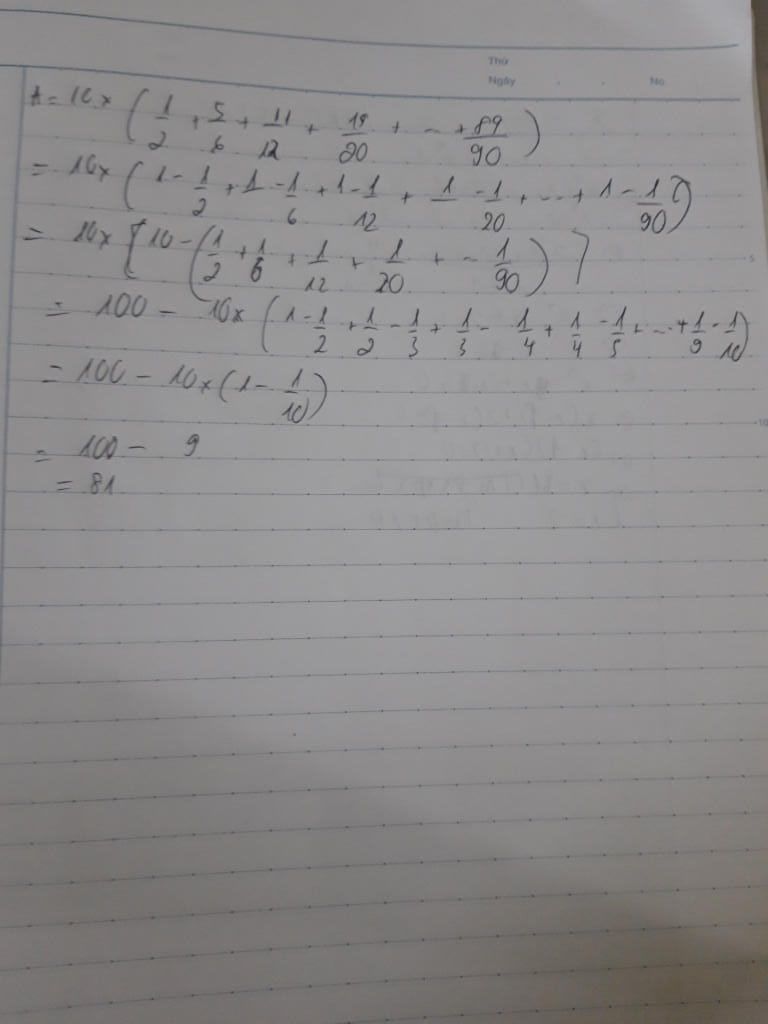 Thứ
Ngày . . No
A = 10 × ( 1/2 + 5/6 + 11/12 + 19/20 + ... + 89/90 )
= 10 × ( 1 - 1/2 + 1 - 1/6 + 1 - 1/12 + 1 - 1/20 + ... + 1 - 1/90 )
= 10 × [ 10 - ( 1/2 + 1/6 + 1/12 + 1/20 + ... 1/90 ) ]
= 100 - 10 × ( 1 - 1/2 + 1/2 - 1/3 + 1/3 - 1/4 + 1/4 - 1/5 + ... + 1/9 - 1/10 )
= 100 - 10 × ( 1 - 1/10 )
= 100 - 9
= 81
5
10